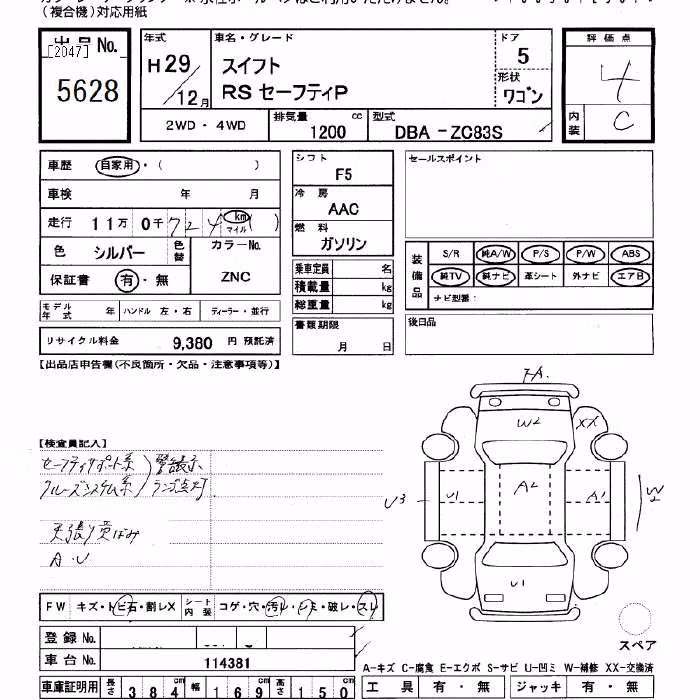 （複合機）対応用紙
出品No.
[2047]
5628
年式
H29
12月
車名・グレード
スイフト
RS セーフティP
ドア
5
形状
ワゴン
評価点
4
内装
C
2WD・4WD
排気量
1200 cc
型式
DBA -ZC83S
車歴 自家用・( )
車検 年 月
走行 11万 0千 724 km マイル ( )
色 シルバー 色替
カラーNo.
ZNC
保証書 有・無
モデル年式 年 ハンドル 左・右 ディーラー・並行
リサイクル料金 9,380 円 預託済
シフト
F5
冷房
AAC
燃料
ガソリン
乗車定員 名
積載量 kg
総重量 kg
書類期限
月 日
セールスポイント
装備品
S/R 純A/W P/S P/W ABS
純TV 純ナビ 革シート 外ナビ エアB
ナビ型番：
後日品
【出品店申告欄(不良箇所・欠品・注意事項等)】
【検査員記入】
セーフティサポート系 警告表示
クルーズシステム系 ランプ点灯
天張り
A・U
FA.
W2
XX
U3
U1
A2
A1
W2
U1
スペア
FW キズ・トビ石・割レX シート内装 コゲ・穴・汚レ・シミ・破レ・スレ
登録No.
車台No. 114381
車庫証明用 長さ 384cm 幅 169cm 高さ 150cm
A-キズ C-腐食 E-エクボ S-サビ U-凹ミ W-補修 XX-交換済
工具 有・無 ジャッキ 有・無